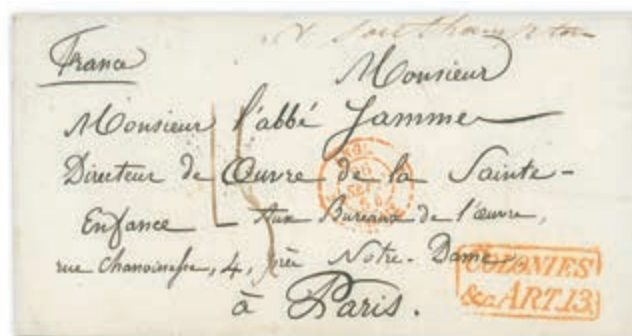 via Southampton
France
Monsieur
Monsieur l'abbé Jammes
Directeur de Œuvre de la Sainte-
Enfance - Aux Bureaux de l'œuvre,
rue Chanoinesse, 4, près Notre-Dame
à Paris.
15
COLONIES
&c. ART.13.